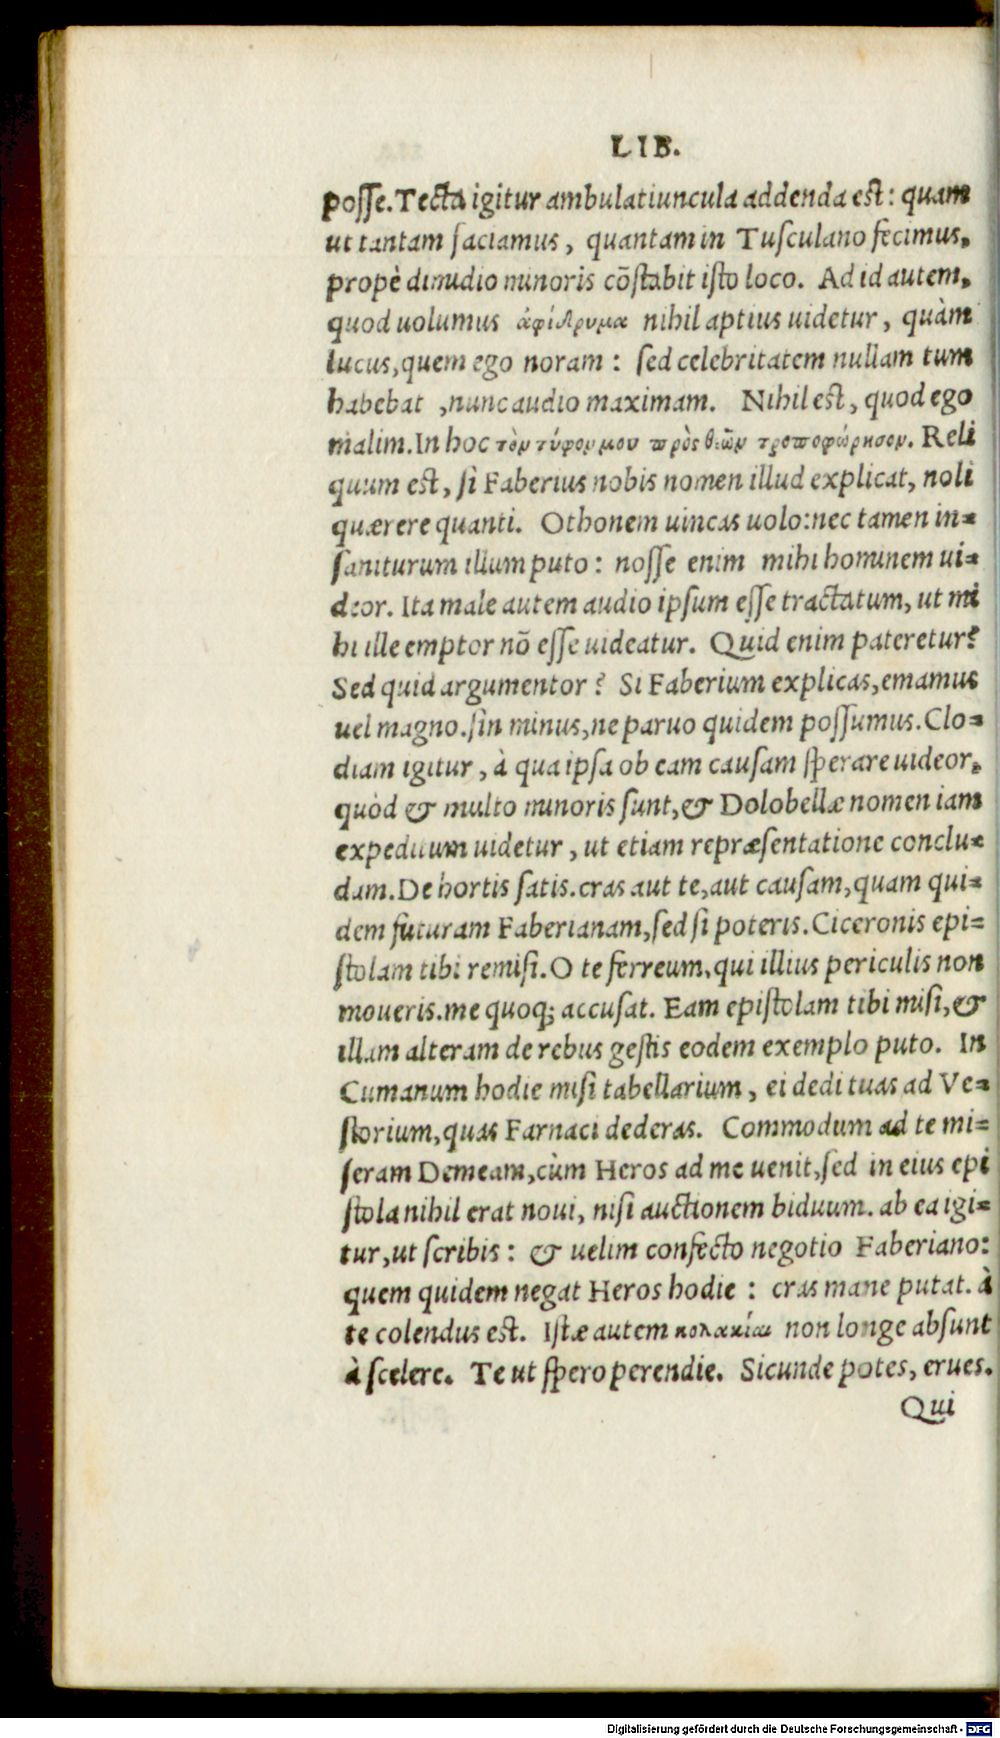 LIB.
posse. Tecta igitur ambulatiuncula addenda est: quam
ut tantam faciamus, quantam in Tusculano fecimus,
propè dimidio minoris cõstabit isto loco. Ad id autem,
quod uolumus ἀφίδρυμα nihil aptius uidetur, quàm
lucus, quem ego noram: sed celebritatem nullam tum
habebat, nunc audio maximam. Nihil est, quod ego
malim. In hoc τὸν τύφον μου πρὸς θεῶν τροποφώρησον. Reli
quum est, si Faberius nobis nomen illud explicat, noli
quærere quanti. Othonem uincas uolo: nec tamen in=
saniturum illum puto: nosse enim mihi hominem ui=
deor. Ita male autem audio ipsum esse tractatum, ut mi
hi ille emptor nõ esse uideatur. Quid enim pateretur?
Sed quid argumentor? Si Faberium explicas, emamus
uel magno. sin minus, ne paruo quidem possumus. Clo=
diam igitur, à qua ipsa ob eam causam sperare uideor,
quòd & multo minoris sunt, & Dolobellæ nomen iam
expeditum uidetur, ut etiam repræsentatione conclu=
dam. De hortis satis. cras aut te, aut causam, quam qui=
dem futuram Faberianam, sed si poteris. Ciceronis epi=
stolam tibi remisi. O te ferreum, qui illius periculis non
moueris. me quoq; accusat. Eam epistolam tibi misi, &
illam alteram de rebus gestis eodem exemplo puto. In
Cumanum hodie misi tabellarium, ei dedi tuas ad Ve=
storium, quas Farnaci dederas. Commodum ad te mi=
seram Demeam, cùm Heros ad me uenit, sed in eius epi
stola nihil erat noui, nisi auctionem biduum. ab ea igi=
tur, ut scribis: & uelim confecto negotio Faberiano:
quem quidem negat Heros hodie: cras mane putat. à
te colendus est. Istæ autem κολακίαι non longe absunt
à scelere. Te ut spero perendie. Sicunde potes, erues.
Qui
Digitalisierung gefördert durch die Deutsche Forschungsgemeinschaft - DFG